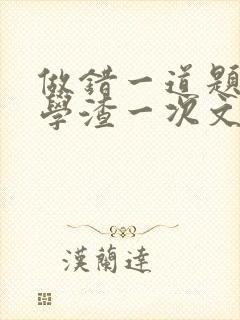 做錯一道題
學渣一次文
漢蘭達